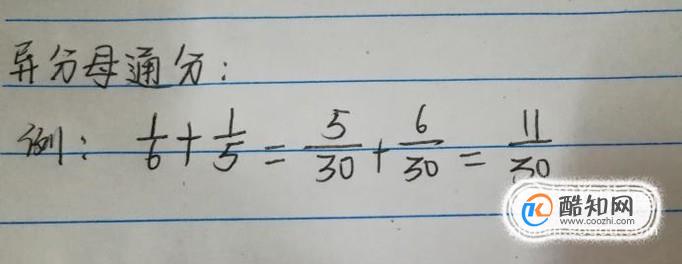 异分母通分：
例：1/6 + 1/5 = 5/30 + 6/30 = 11/30
酷知网
www.coozhi.com